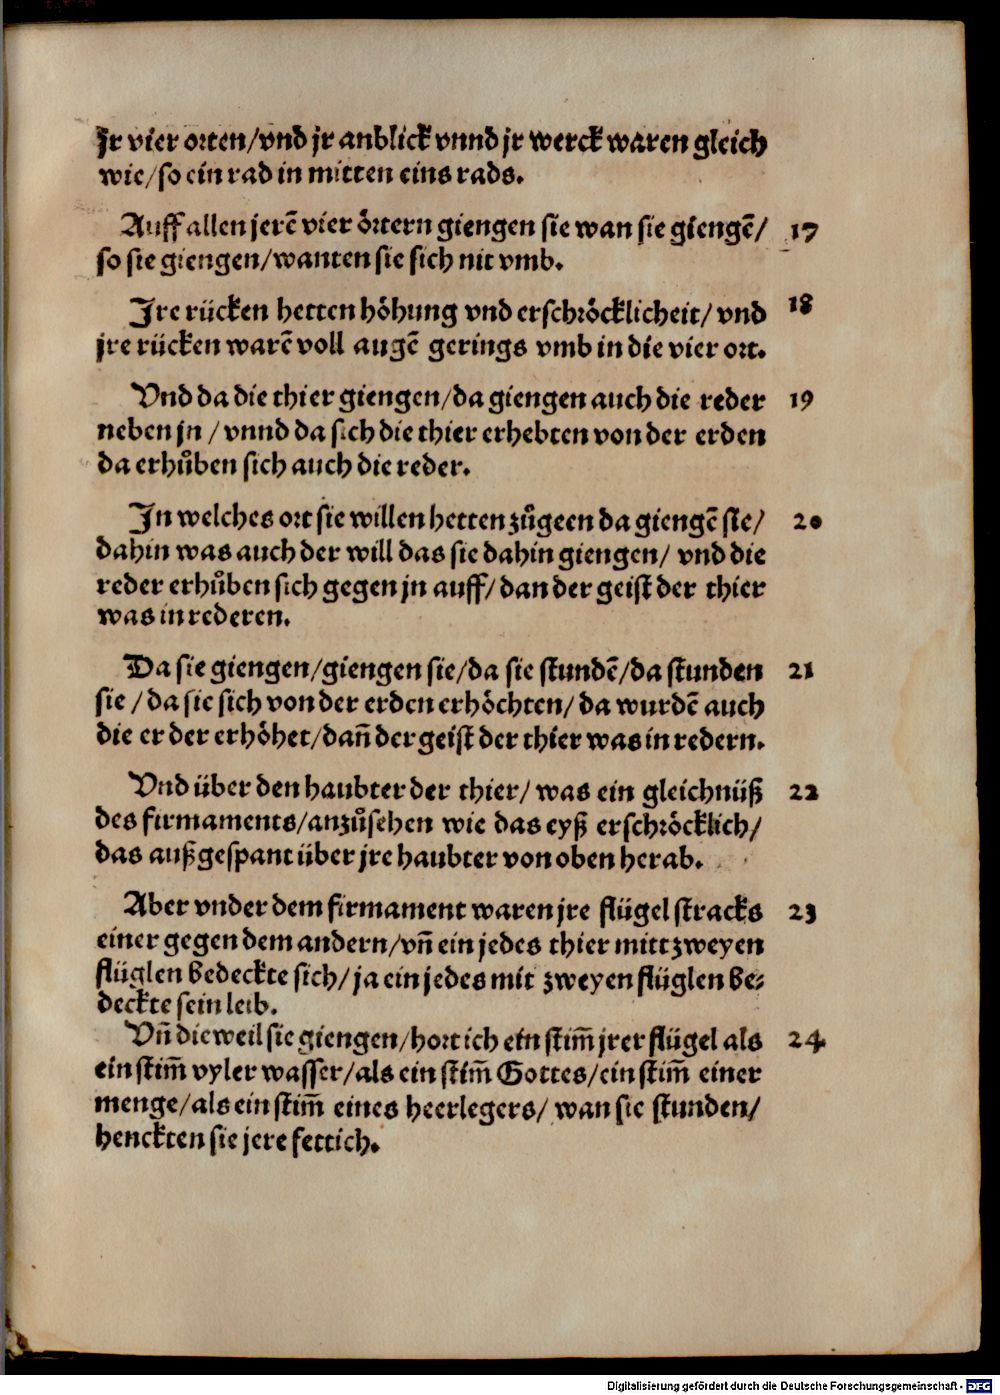 Jr vier orten/vnd jr anblick vnnd jr werck waren gleich
wie/so ein rad in mitten eins rads.
Auff allen jerē vier örtern giengen sie wan sie giengē/ 17
so sie giengen/wanten sie sich nit vmb.
Jre rücken hetten höhung vnd erschröcklicheit/ vnd 18
jre rücken warē voll augē gerings vmb in die vier ort.
Vnd da die thier giengen/da giengen auch die reder 19
neben jn / vnnd da sich die thier erhebten von der erden
da erhůben sich auch die reder.
Jn welches ort sie willen hetten zůgeen da giengē sie/ 20
dahin was auch der will das sie dahin giengen/ vnd die
reder erhůben sich gegen jn auff/ dan der geist der thier
was in rederen.
Da sie giengen/giengen sie/da sie stundē/da stunden 21
sie / da sie sich von der erden erhöchten/ da wurdē auch
die er der erhöhet/dañ der geist der thier was in redern.
Vnd über den haubter der thier/ was ein gleichnüß 22
des firmaments/anzůsehen wie das eyß erschröcklich/
das außgespant über jre haubter von oben herab.
Aber vnder dem firmament waren jre flügel stracks 23
einer gegen dem andern/vñ ein jedes thier mitt zweyen
flüglen bedeckte sich/ ja ein jedes mit zweyen flüglen be⸗
deckte sein leib.
Vñ dieweil sie giengen/hort ich ein stim̄ jrer flügel als 24
ein stim̄ vyler wasser/als ein stim̄ Gottes/ein stim̄ einer
menge/als ein stim̄ eines heerlegers/ wan sie stunden/
henckten sie jere fettich.
Digitalisierung gefördert durch die Deutsche Forschungsgemeinschaft - DFG